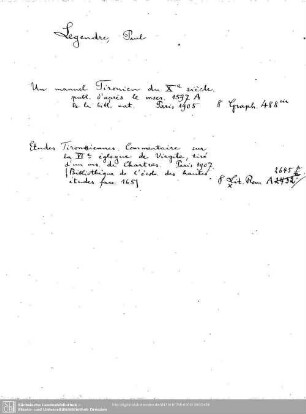 Legendre, Paul
Un manuel Tironien du Xe siècle
publ. d'après le mscr. 1597 A
de la bibl. nat. Paris 1905 8 Graph. 488 m
Etudes Tironiennes. Commentaire sur
la VIe églogue de Virgile, tiré
d'un ms. de Chartres. Paris 1907.
(Bibliothèque de l'école des hautes
études fasc 165) 8 Lit. Rom. A